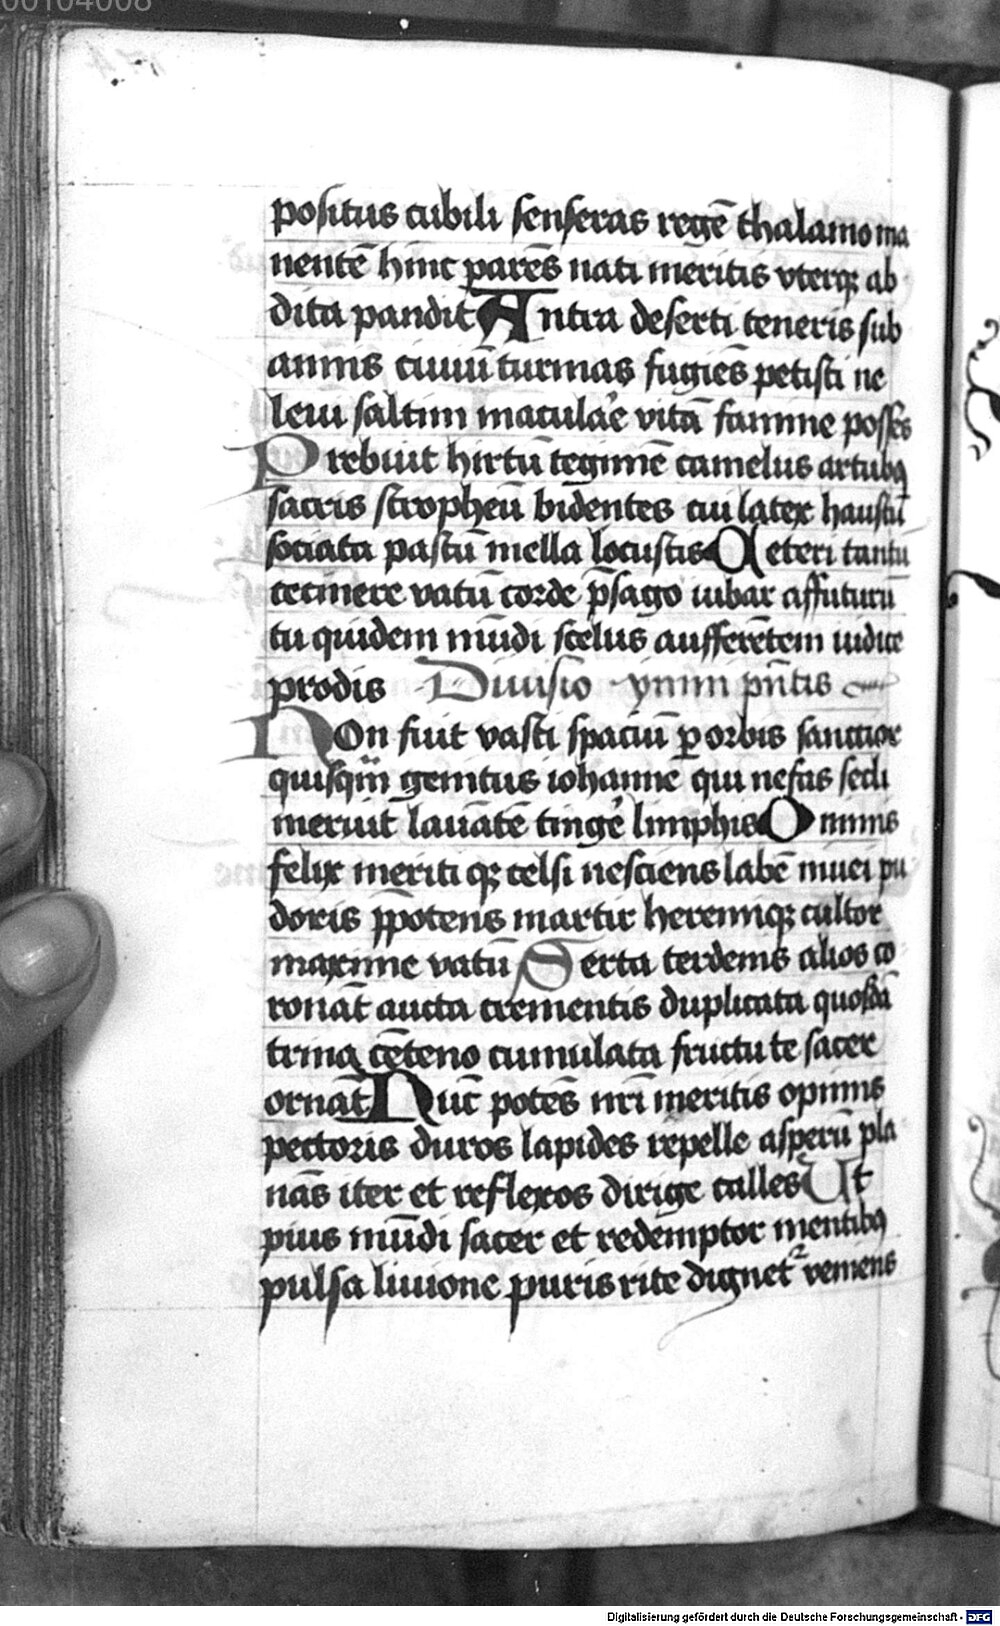 00104008
positus cubili senseras regē thalamo ma
nentē hinc parēs nati meritis vterqꝫ ab
dita pandit Antra deserti teneris sub
annis ciuiū turmas fugiēs petisti ne
leui saltim macula'e vitā famine posses
Prebuit hirtū tegimē camelus artubꝯ
sacris stropheū bidentes cui latex haustū
sociata pastū mella locustis Ceteri tantū
cecinere vatū corde p̄sago iubar affuturū
tu quidem mūdi scelus aufferētem iudice
prodis Diuisio ymni pn̄tis
Non fuit vasti spaciū ꝑ orbis sanctior
quisqm̄ genitus iohanne qui nefas secli
meruit lauātē tinge' limphis O nimis
felix meriti qꝫ celsi nesciens labē niuei pu
doris p̄potens martir heremiqꝫ cultor
maxime vatū Serta terdenis alios co
ronāt aucta crementis duplicata quosdā
trina cēteno cumulata fructu te sacer
ornāt Nūc potēs nr̄i meritis opimis
pectoris duros lapides repelle asperū pla
nās iter et reflexos dirige calles Ut
pius mūdi sacer et redemptor mentibꝯ
pulsa liuione puris rite dignet᷑ veniens
Digitalisierung gefördert durch die Deutsche Forschungsgemeinschaft - DFG